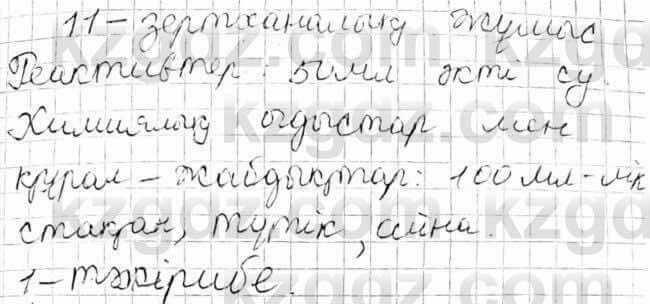 11-зертханалық жұмыс
Реактивтер: 50 мл әкті су.
Химиялық ыдыстар мен
құрал-жабдықтар: 100 мл-лік
стақан, түтік, айна.
1-тәжірибе.